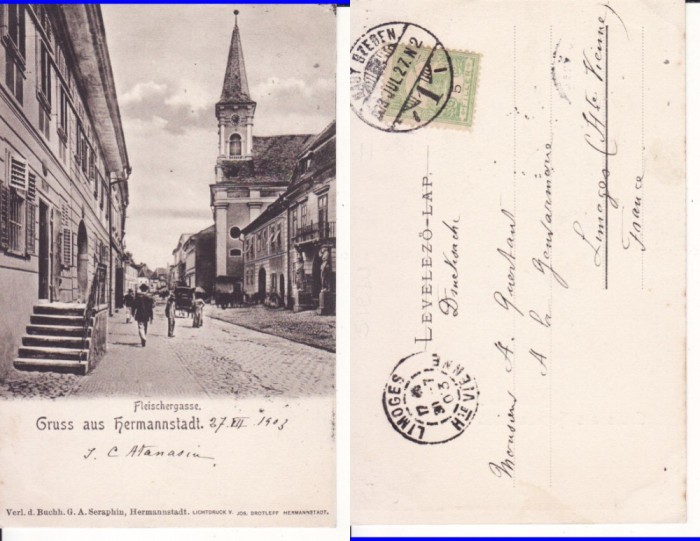 Fleischergasse.
Gruss aus Hermannstadt. 27. VII 1903
J. C Atanasin
Verl. d. Buchh. G. A. Seraphin, Hermannstadt. LICHTDRUCK V. JOS. DROTLEFF HERMANNSTADT.
LEVELEZŐ-LAP.
Drucksache
Monsieur A.
A la Gendarmerie
Limoges (Hte Vienne)
France
JUL. 27. N 2
LIMOGES
HTE VIENNE
03